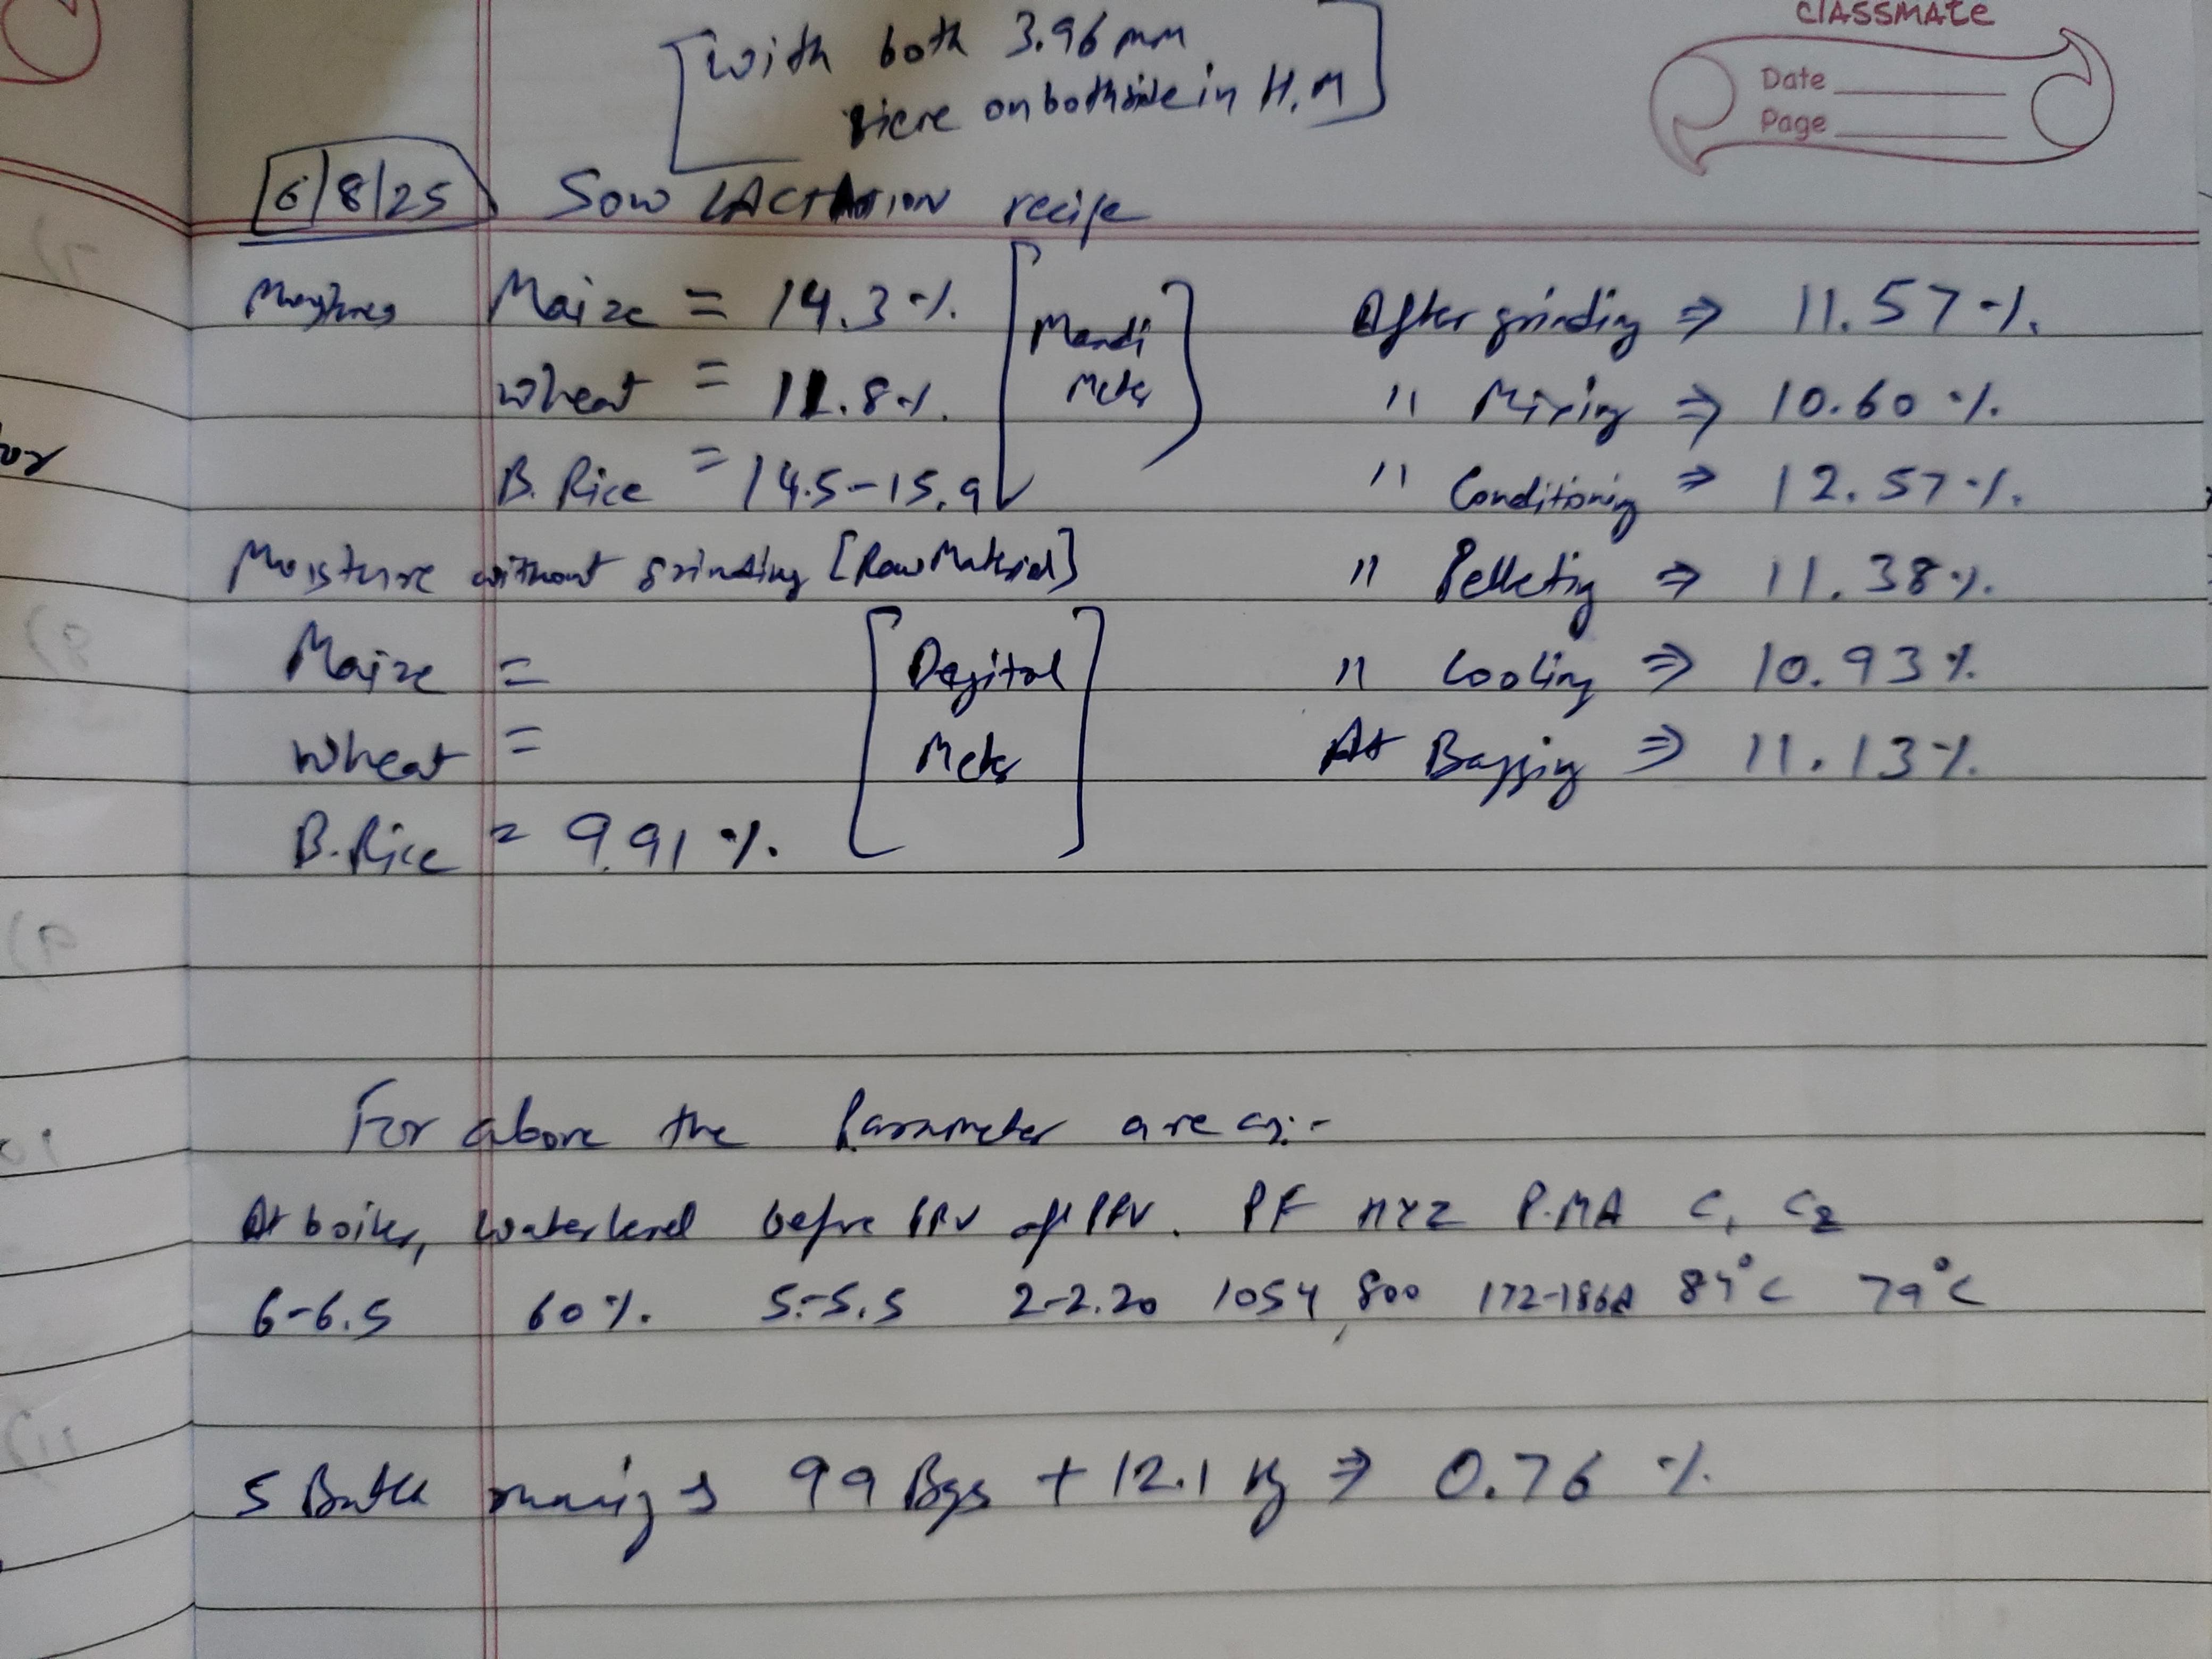 CLASSMATE
Date
Page
[with both 3.96 mm
sieve on both side in H.M]
6/8/25 Sow LACTATION recipe
Maize = 14.3 %.
Wheat = 11.8 %.
B. Rice = 14.5-15.9
[Mandi
Meter]
After grinding ⇒ 11.57 %.
" Mixing ⇒ 10.60 %.
" Conditioning ⇒ 12.57 %.
" Pelleting ⇒ 11.38 %.
" Cooling ⇒ 10.93 %.
At Bagging ⇒ 11.13 %.
Moisture without grinding [Raw Material]
Maize =
Wheat =
B. Rice = 9.91 %.
[Degital
Meter]
For above the Parameter are as:-
At boiler, water level before PRV aft PRV. PF HYZ P.MA C1 C2
6-6.5 60 %. 5-5.5 2-2.20 1054, 800 172-186A 84°C 79°C
5 Batch running 99 Bgs + 12.1 kg ⇒ 0.76 %.